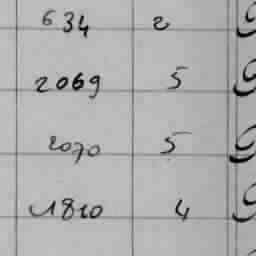 634 2
2069 5
2070 5
1810 4